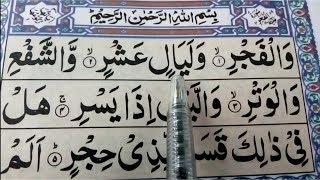 بِسْمِ اللهِ الرَّحْمٰنِ الرَّحِيْمِ
وَالْفَجْرِ ۙ ۱ وَلَيَالٍ عَشْرٍ ۙ ۲ وَّالشَّفْعِ
وَالْوَتْرِ ۙ ۳ وَالَّيْلِ اِذَا يَسْرِ ۚ ۴ هَلْ
فِيْ ذٰلِكَ حِجْرٍ ؕ ۵ اَلَمْ